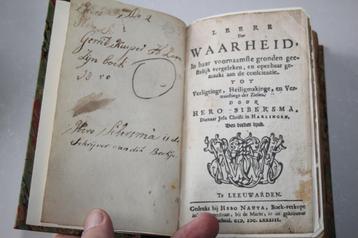 Gerrit Kuiper
Zyn boek
Hero Sibersma is de
Schrijver van dit Boekje
LEERE
Der
WAARHEID,
In haar voornaamste gronden gee-
stelijk vergeleken, en openbaar ge-
maakt aan de conscientie.
TOT
Verligtinge, Heiligmakinge, en Ver-
der Zielen,
DOOR
HERO SIBERSMA,
Dienaar Jesu Christi in HARLINGEN.
Den druk
Te LEEUWARDEN.
Gedrukt bij HERO NAUTA, Boek-verkoper
bij de Markt,